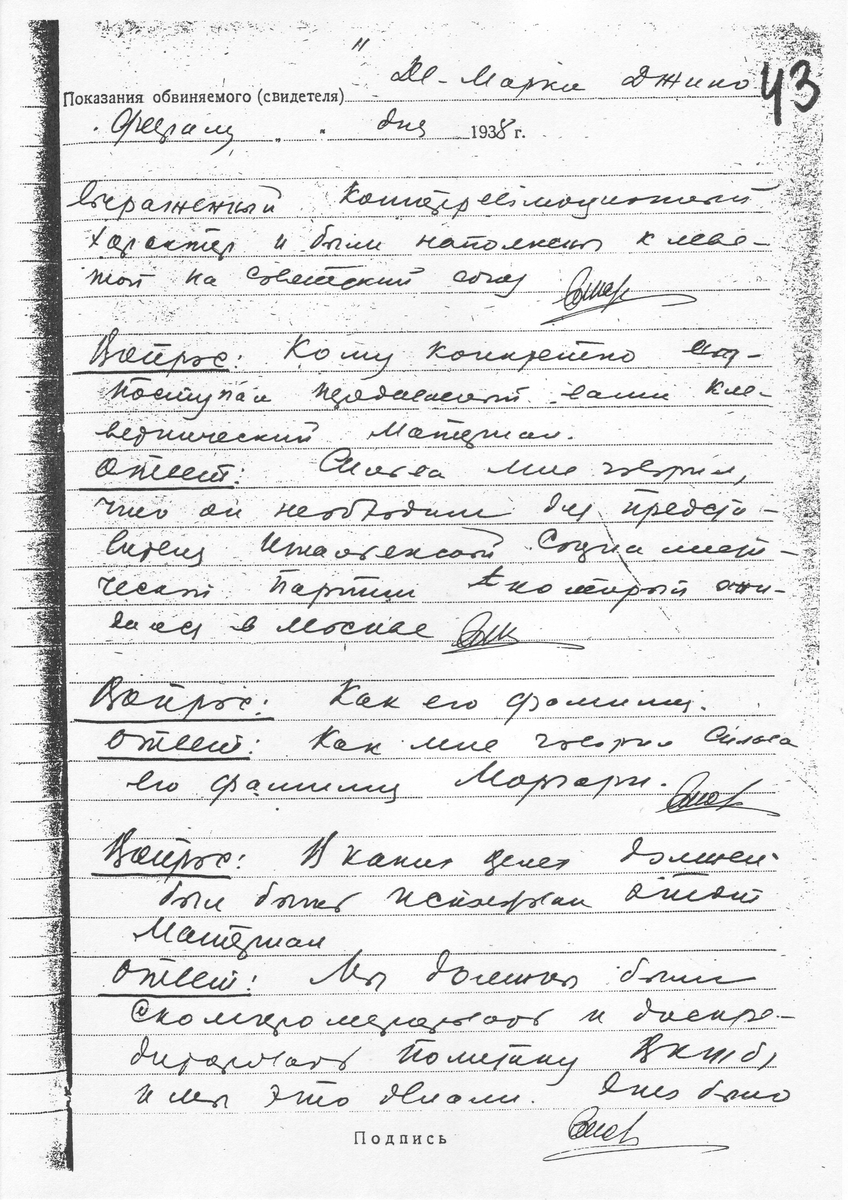 " Де-Марки Джино 43
Показания обвиняемого (свидетеля)
Февраля " " дня 1938 г.
выраженный контрреволюционный
характер и были наполнены клеве-
той на Советский союз
Вопрос: Кому конкретно
поступал передаваемый вами кле-
ветнический материал.
Ответ: Сильва мне говорил,
что он необходим для предста-
вителя Итальянской Социалисти-
ческой партии который ожи-
дался в Москве
Вопрос: Как его фамилия.
Ответ: Как мне говорил Сильва
его фамилия Моргари.
Вопрос: В каких целях должен
был быть использован этот
материал
Ответ: Мы должны были
скомпрометировать и дискре-
дитировать политику ВКПб,
и мы это делали. было
Подпись